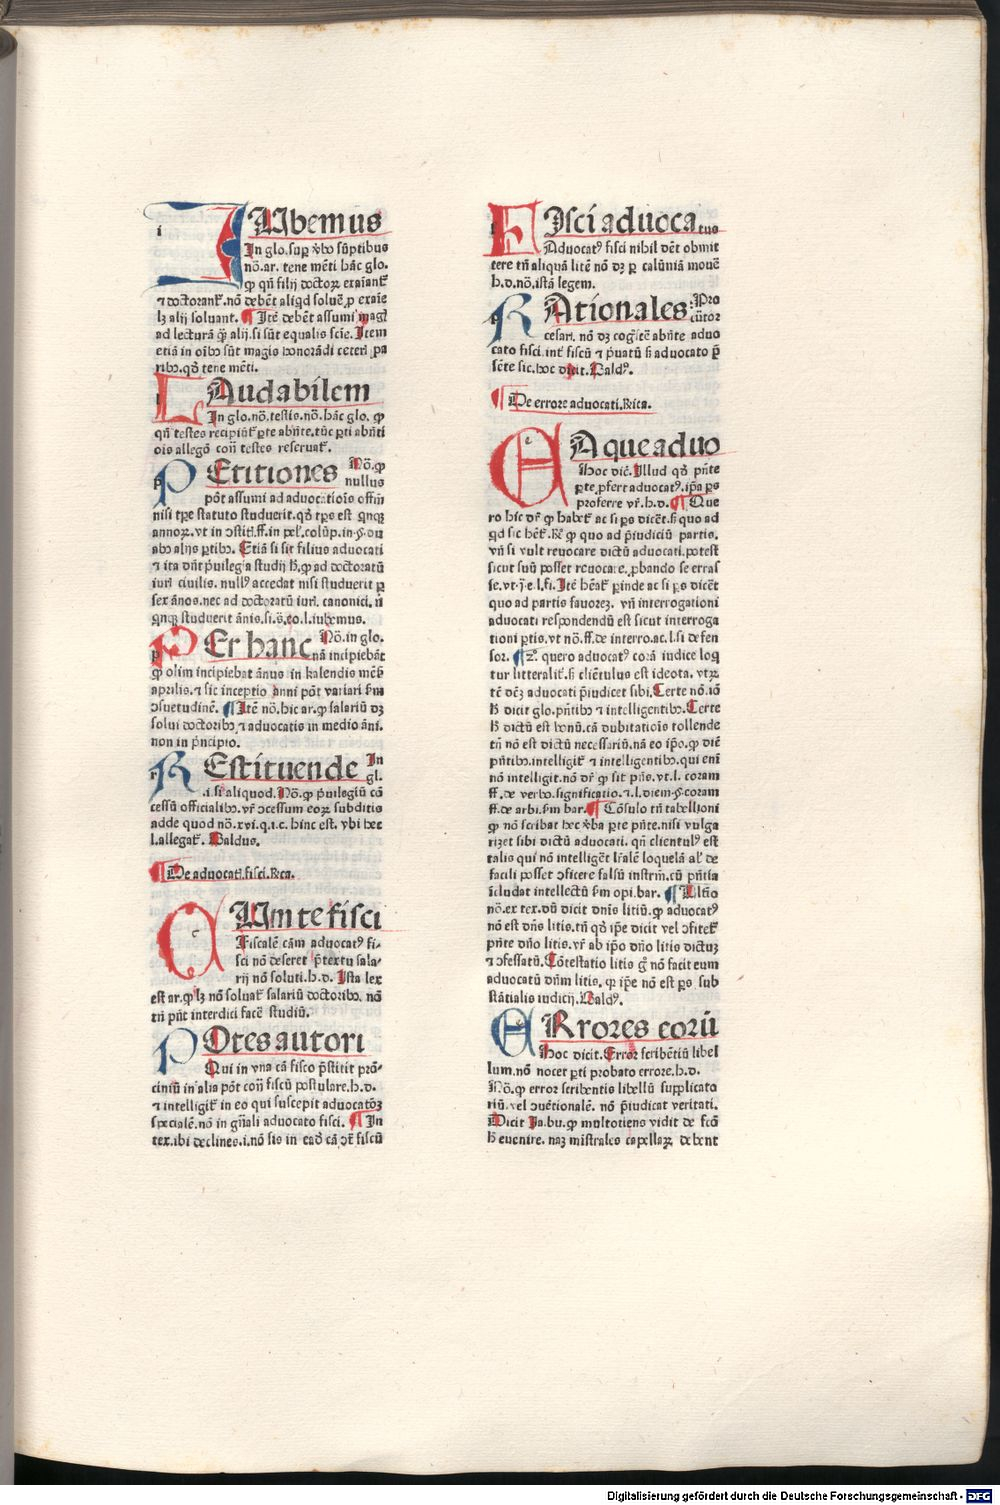 IUbemus
In glo. sup̱ v̄bo sūptibus
nō. ar. tene mēti hāc glo.
ꝙ qn̄ filij doctoꝝ exaīant᷑
⁊ doctorant᷑. nō debēt aliqd soluē ꝓ exaīe
lꝫ alij soluant. ¶ Itē debēt assumi magr̄
ad lecturā q̄ alij. si sūt equalis scīe. Item
etiā in oībꝰ sūt magis honorādi ceteri pa
ribꝰ. qđ tene mēti.
LAudabilem
In glo. nō. testis. nō. hāc glo. ꝙ
qn̄ testes recipiūt᷑ ꝑte abn̄te. tūc ꝑti abn̄ti
oīs allegō cōn̄ testes reseruat᷑.
PEtitiones Nō. ꝙ
nullus
pōt assumi ad aduocatiōis offm̄
nisi tꝑe statuto studuerit. qđ tꝑs est qnqꝫ
annoꝝ. vt in ꝯstit̄. ff. in pel. colūp. in. §. du
abꝰ alijs ꝑtibꝰ. Etiā si sit filius aduocati
⁊ ita dn̄t p̄uilegia studij h̄. ꝙ ad doctoratū
iuri ciuilis. nullꝰ accedat nisi studuerit ꝑ
sex ānos. nec ad doctoratū iuri. canonici. ni
qnqꝫ studuerit ānis. si. s̄. eo. l. iubemus.
PEr hanc Nō. in glo.
nā incipiebāt
ꝙ olim incipiebat ānus in kalendis mēsꝭ
aprilis. ⁊ sic inceptio anni pōt variari ẜm
ꝯsuetudinē. ¶ Itē nō. hic ar. ꝙ salariū dꝫ
solui doctoribꝰ, ⁊ aduocatis in medio āni.
non in p̄ncipio.
REstituende In
gl.
.i. si aliquod. Nō. ꝙ p̄uilegiū cō
cessū officialibꝰ. vr̄ ꝯcessum eoꝝ subditis
adde quod nō. xvi. q. i. c. hinc est. vbi hec
l. allegat᷑. Baldus.
¶ De aduocati. fisci. Rica.
AUm te fisci
Fiscalē cām aduocatꝰ fi-
sci nō deseret p̄textu sala-
rij nō soluti. h. d. Ista lex
est ar. ꝙ lꝫ nō soluat᷑ salariū doctoribꝰ. nō
tn̄ pn̄t interdici facē studiū.
POtes autori
Qui in vna cā fisco p̄stitit prō-
ciniū in alia pōt cōn̄ fiscū postulare. h. d.
⁊ intelligit᷑ in eo qui suscepit aduocatōꝫ
specialē. nō in gn̄ali aduocato fisci. ¶ In
tex. ibi declines. i. nō sis in eadꝫ cā ꝯt᷑ fiscū
FIsci aduoca tus
Aduocatꝰ fisci nihil dēt obmit
tere tn̄ aliquā litē nō dꝫ ꝑ calūniā mouē
h. d. nō. istā legem.
RAtionales: Pro
cūrtor
cesari. nō dꝫ cog̓scē abn̄te aduo
cato fisci. int᷑ fiscū ⁊ p̄uatū si aduocato p̄
sēte sic. hoc dicit. Baldꝰ.
¶ De errore aduocati. Rica.
EA que aduo
Hoc dīc̄. Illud qđ pn̄te
ꝑte ꝓfert aduocatꝰ. ip̄a ꝑs
proferre vr̄. h. d. ¶ Que
ro hic dr̄ ꝙ habet᷑ ac si ꝑs dicēt. si quo ad
qd sic hēt᷑. Rē. ꝙ quo ad p̄iudiciū partis.
vn̄ si vult reuocare dictū aduocati. potest
sicut suū posset reuocare. ꝓbando se erras
se. vt. j̄. e. l. fi. Itē hēat᷑ perinde ac si ꝑs dicēt
quo ad partis fauoreꝫ. vn̄ interrogationi
aduocati respondendū est sicut interroga
tioni ꝑtis. vt nō. ff. de interro. ac. l. si defen
sor. ¶ 2º. quero aduocatꝰ corā iudice loq
tur litteralit᷑. si cliētulus est ideota. vtꝝ
tē dēꝫ aduocati p̄iudicet sibi. Certe nō. iō
h̄ dicit glo. pn̄tibꝰ ⁊ intelligentibꝰ. Certe
h̄ dictū est bonū. cā dubitatiōis tollende
tn̄ nō est dictū necessariū. nā eo ip̄o. ꝙ dic̄
pn̄tibꝰ. intelligit᷑ ⁊ intelligentibꝰ. qui enī
nō intelligit. nō dr̄ ꝙ sit pn̄s. vt. l. coram
ff. de verbo. significatio. ⁊. l. diem. §. coram
ff. de arbi. ẜm bar. ¶ Cōsulo tn̄ tabellioni
ꝙ nō scribat hec v̄ba ꝑte pn̄te. nisi vulga
rizet sibi dictū aduocati. qn̄ clientulꝰ est
talis qui nō intelligēt lr̄alē loquelā al̓ de
facili posset ꝯficere falsū instrm̄. cū pn̄tia
īcludat intellectū ẜm opi. bar. ¶ Ultīo
nō. ex tex. dū dicit dn̄is litiū. ꝙ aduocatꝰ
nō est dn̄s litis. tn̄ qđ ip̄e dicit vel ꝯfitet᷑
pn̄te dn̄o litis. vr̄ ab ip̄o dn̄o litis dictuꝫ
⁊ ꝯfessatū. Cōtestatio litis g̊ nō facit eum
aduocatū dn̄m litis. ꝙ ip̄e nō est ꝑs sub
stātialis iudicij. Baldꝰ.
ERrores eorū
Hoc dicit. Error scribētiū libel
lum. nō nocet ꝑti probato errore. h. d.
Nō. ꝙ error scribentis libellū supplicato
riū. vel ꝯuētionalē. nō p̄iudicat veritati.
Dicit Ja. bu. ꝙ multotiens vidit de fcō
h̄ euenire. naꝫ mistrales capellaꝝ debent
Digitalisierung gefördert durch die Deutsche Forschungsgemeinschaft - DFG